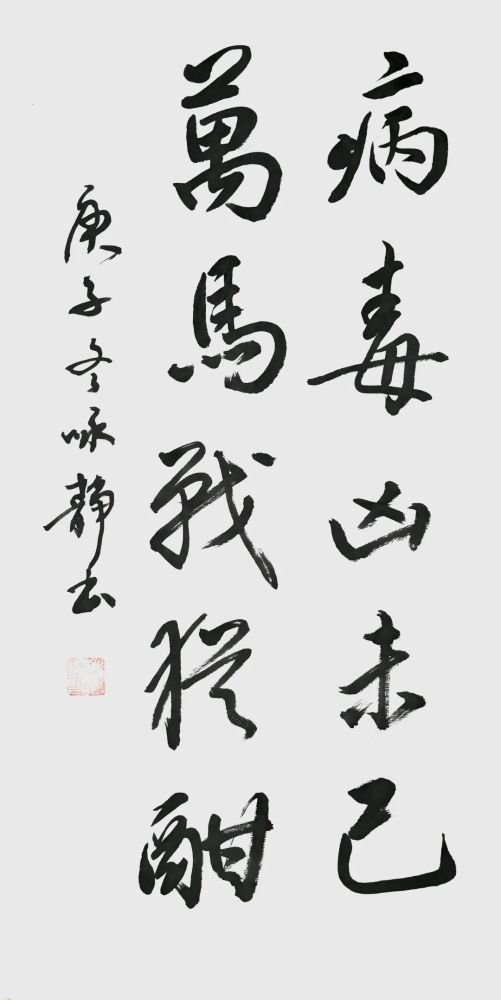 病毒凶未已
萬馬戰猶酣
庚子冬咏静书